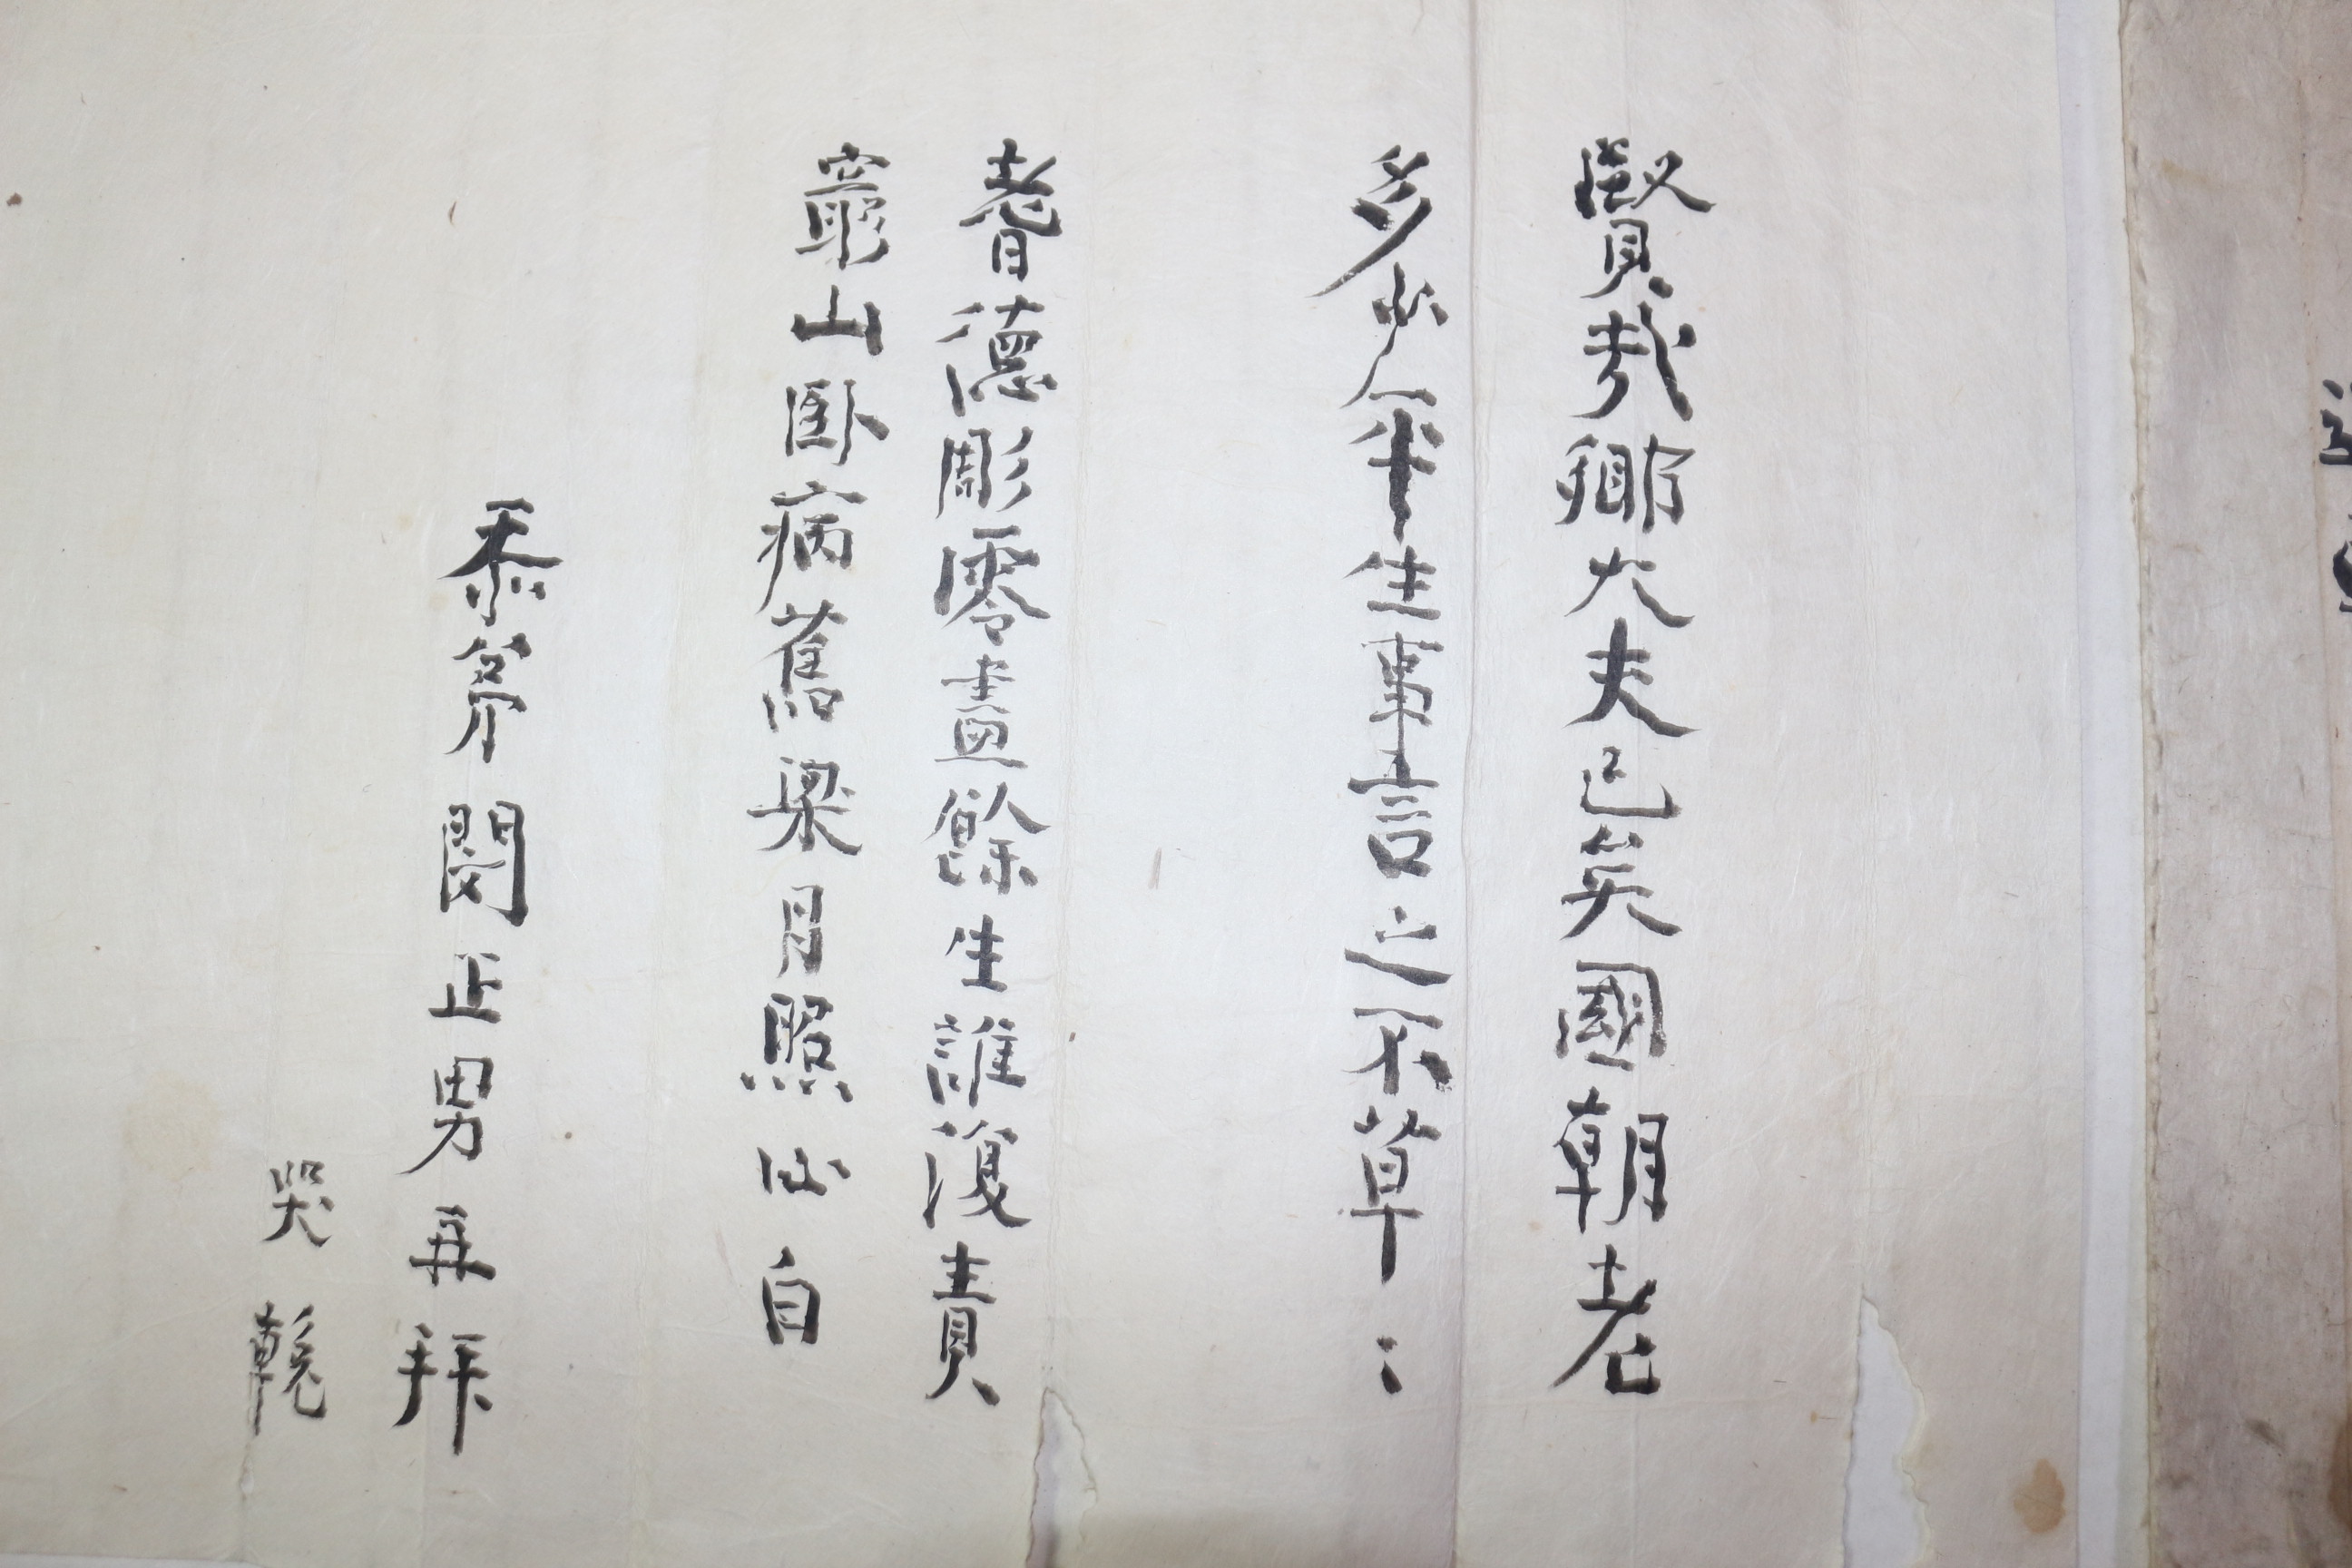 賢哉卿大夫已矣國朝老
多少平生事言之不草〻
耆德彫零盡餘生誰復責
竆山卧病舊梁月照心白
忝第閔正男再拜
哭輓